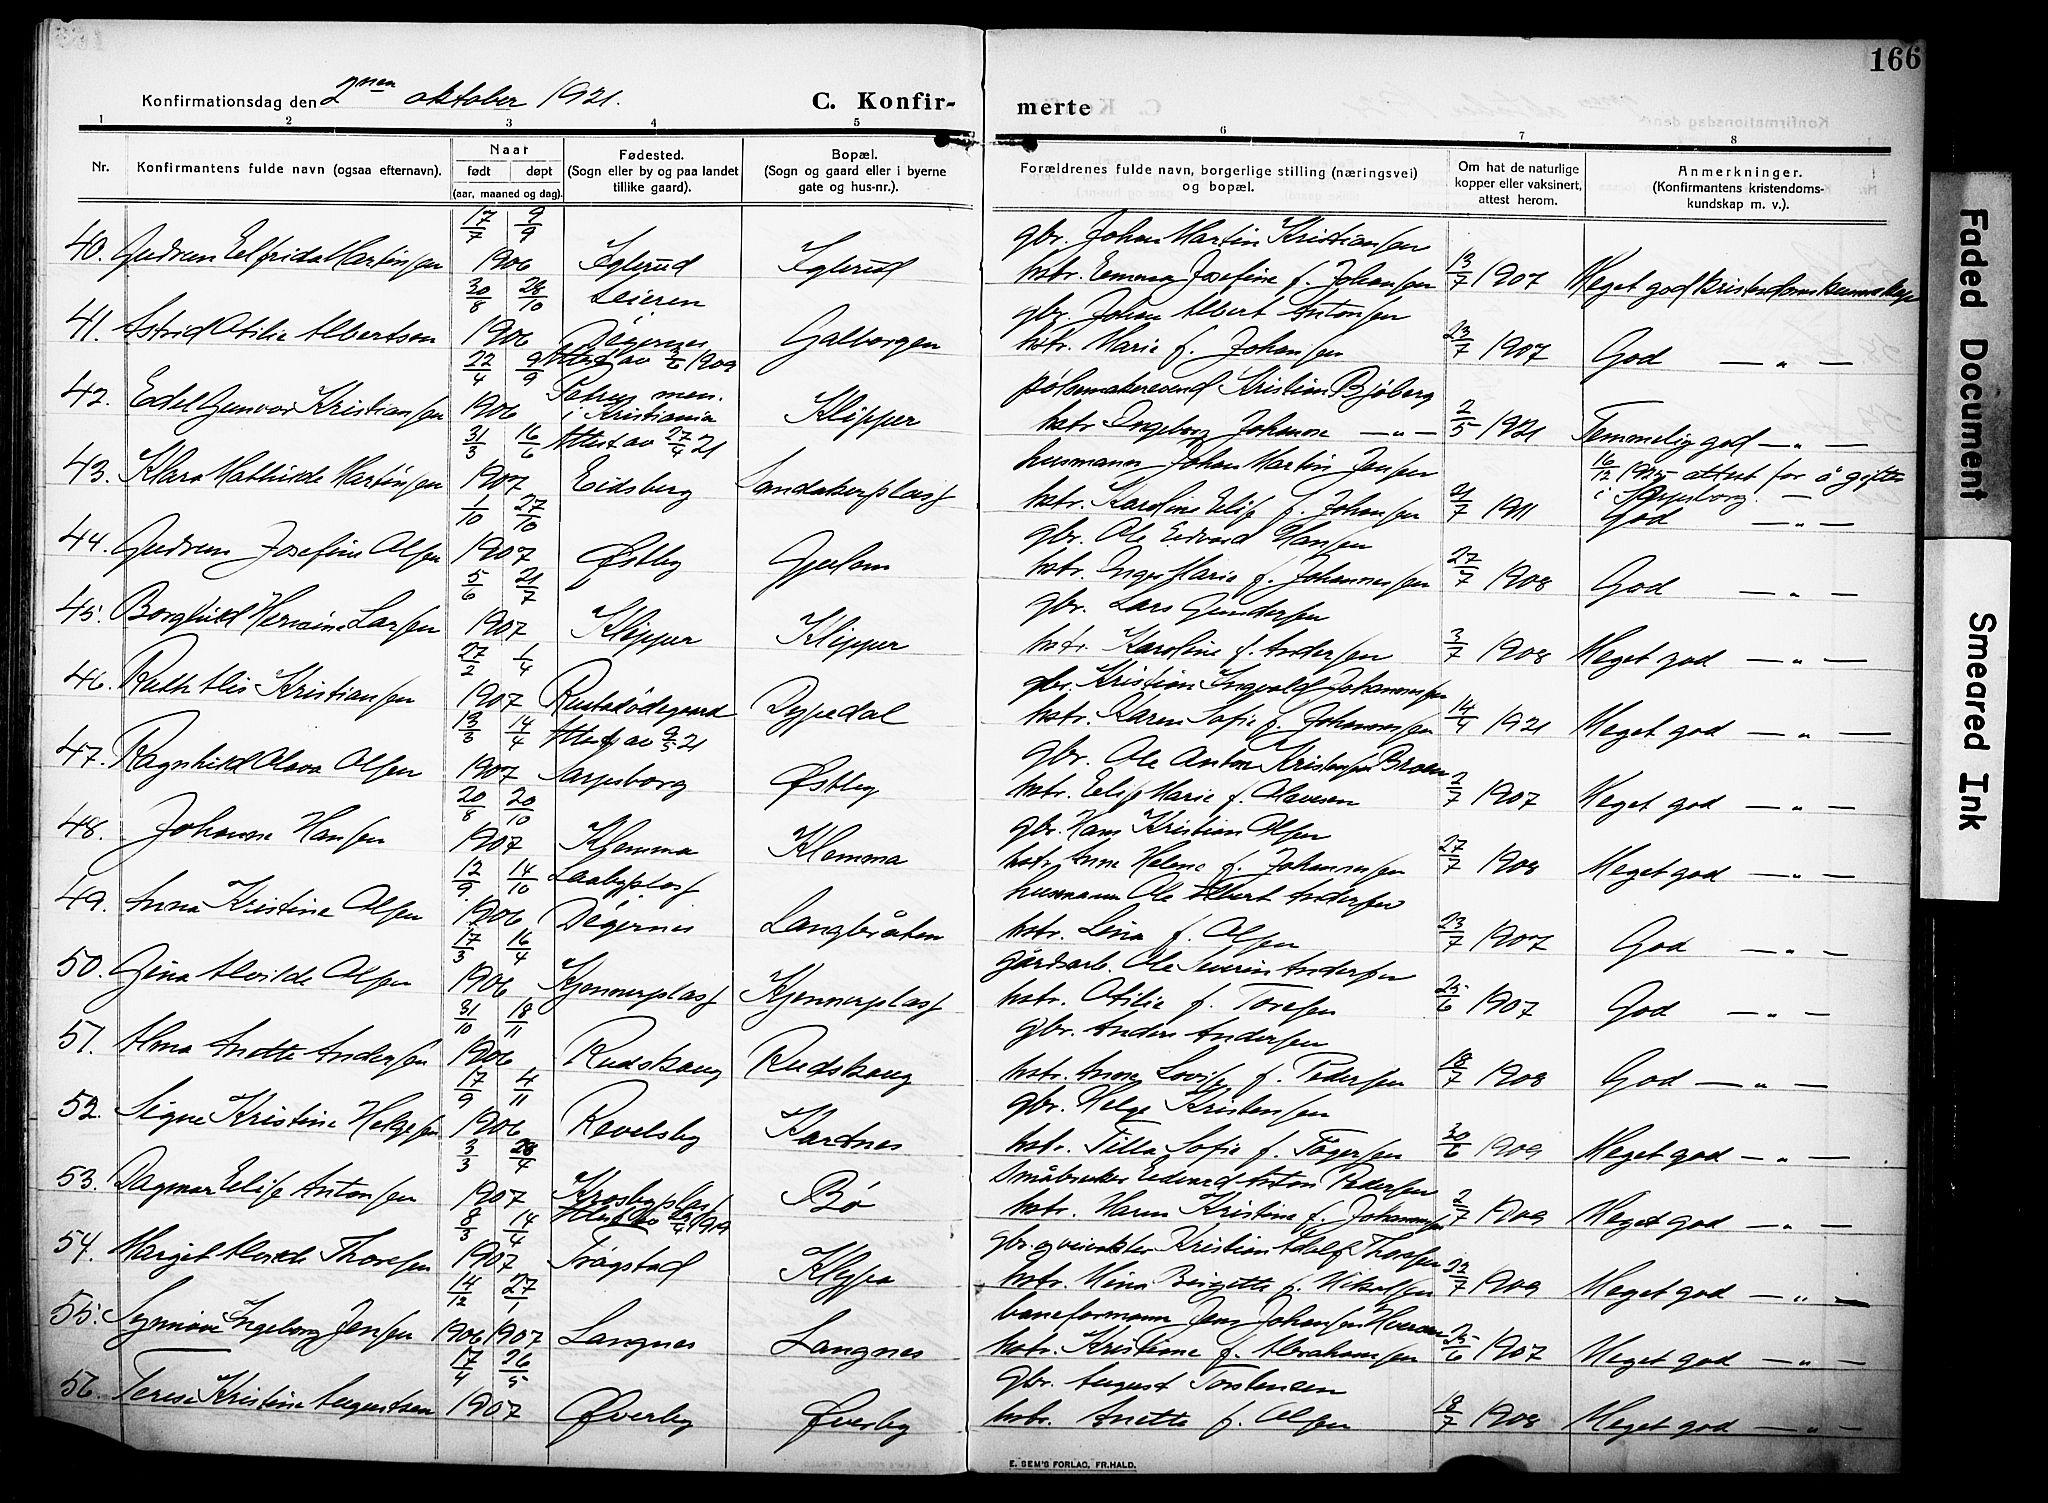 166
Konfirmationsdag den 2nen oktober 1921.
C. Konfir-
merte
1 2 3 4 5 6 7 8
Nr.
Konfirmantens fulde navn (ogsaa efternavn).
Naar
født døpt
(aar, maaned og dag).
Fødested.
(Sogn eller by og paa landet
tillike gaard).
Bopæl.
(Sogn og gaard eller i byerne
gate og hus-nr.).
Forældrenes fulde navn, borgerlige stilling (næringsvei)
og bopæl.
Om hat de naturlige
kopper eller vaksinert,
attest herom.
Anmerkninger.
(Konfirmantens kristendoms-
kundskap m. v.).
17/7 9/9 gbr. Johan Martin Kristiansen
40. Gudrun Elfrida Martinsen 1906 Iglerud Iglerud hstr. Emma Josefine f. Johansen 13/7 1907 Meget god kristendomskunnskap
30/8 28/10 Leieren gbr. Johan Albert Antonsen
41. Astrid Otilie Albertsen 1906 Degernes Galborgen hstr. Marie f. Johansen 23/7 1907 God — „ —
22/4 9/9 Attest av 2/6 1909 Kristian Bjöberg
42. Edel Gunvor Kristiansen 1906 Petrus men. i Kristiania Klipper hstr. Ingeborg Johanne — „ — 2/5 1921 Temmelig god — „ —
31/3 16/6 Attest av 27/4 21 husmann Johan Martin Jensen 16/12 1925 attest for å gifte
43. Klara Mathilde Martinsen 1907 Eidsberg Landakerplass hstr. Karoline Elise f. Johansen 21/7 1911 i Sarpsborg. — God — „ —
1/10 27/10 gbr. Ole Edvard Hansen
44. Gudrun Josefine Olsen 1907 Østby Gjulom hstr. Inger Marie f. Johannessen 27/7 1908 God — „ —
5/6 21/7 gbr. Lars Gundersen
45. Borghild Hermine Larsen 1907 Klipper Klipper hstr. Karoline f. Andersen 3/7 1908 Meget god — „ —
27/2 1/4 gbr. Kristian Ingvald Johannessen
46. Ruth Alis Kristiansen 1907 Rustadødegaard Dypedal hstr. Karen Sofie f. Johannessen 14/4 1921 Meget god — „ —
13/3 14/4 Attest av 9/5 21 gbr. Ole Anton Kristensen Braen
47. Ragnhild Olava Olsen 1907 Sarpsborg Østby hstr. Elise Marie f. Olavesen 2/7 1907 Meget god — „ —
20/8 20/10 gbr. Hans Kristian Olsen
48. Johanne Hansen 1907 Klemma Klemma hstr. Anne Helene f. Johannessen 27/7 1908 Meget god — „ —
12/9 14/10 husmann Ole Albert Andersen
49. Anna Kristine Olsen 1906 Degernes Langbråten hstr. Lina f. Olsen 23/7 1907 God — „ —
17/3 16/4 gårdsarb. Ole Severin Andersen
50. Gina Alvilde Olsen 1906 Kjennerplass Kjennerplass hstr. Otilie f. Toresen 25/6 1907 God — „ —
31/10 18/11 gbr. Anders Andersen
51. Alma Anette Andersen 1906 Rudskaug Rudskaug hstr. Anna Lovise f. Pedersen 18/7 1908 God — „ —
17/9 4/11 gbr. Helge Kristensen
52. Signe Kristine Helgesen 1906 Revelsby Kardnes hstr. Tilla Sofie f. Tøgersen 30/6 1909 Meget god — „ —
3/3 28/4 Småbruker Edvard Anton Pedersen
53. Dagmar Elise Antonsen 1907 Krosbyplass Bø hstr. Haren Kristine f. Johannessen 2/7 1909 Meget god — „ —
8/3 14/4 gbr. og veivokter Kristian Adolf Thoresen
54. Marget Alvilde Thoresen 1907 Trøgstad Kleppa hstr. Mina Birgette f. Nikolsen 22/7 1909 Meget god — „ —
14/12 27/1 baneformann Jens Johansen
55. Synnöve Ingeborg Jensen 1906 1907 Langnes Langnes hstr. Kristine f. Abrahamsen 25/6 1907 Meget god — „ —
17/4 26/5 gbr. August Torstensen
56. Terese Kristine Augustsen 1907 Øverby Øverby hstr. Anette f. Olsen 18/7 1908 Meget god — „ —
E. SEM'S FORLAG, FR.HALD.
Faded Document
Smeared Ink